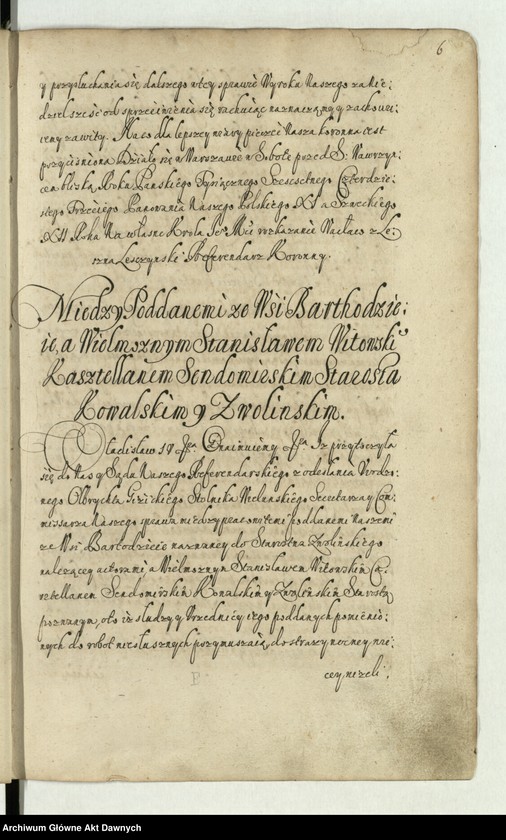 6
y przysłuchania się dalszego w tey sprawie Wyroku Naszego za Nie:
dziel sześć od sprzeciwienia się rachuiąc naznaczamy y zachowu:
iemy zawity. Na co dla lepszey wiary pieczęć Nasza koronna iest
przyciśniona. Działo się w Warszawie w Sobotę przed S: Wawrzyn:
cem blisko Roku Panskiego Tysiącznego Szescsetnego Czterdzie:
stego Trzeciego Panowania Naszego Polskiego XI a Szweckiego
XII Roku Na własne Krola Je° Mći roskazanie Wacław z Le:
szna Lesczynski Referendarz Koronny.
Między Poddanemi ze Wsi Barthodzie:
ie, a Wielmoznym Stanisławem Witowskī
Kasztellanem Sendomirskim Starostą
Kowalskim y Zwolinskim.
Wladislaw IV etc. Oznaimuiemy etc. Iz przytoczyła
się do Nas y Sądu Naszego Referendarskiego z odesłania Urodzo:
nego Olbrychta Giżickiego Stolnika Wielunskiego Secretarza y Com:
missarza Naszego sprawa między pracowitemi poddanemi Naszemi
ze Wsi Bartodzieie nazwaney do Starostwa Zwolinskiego
należącey actorami, a Wielmoznym Stanisławem Witowskim Ca:
stellanem Sendomirskim Kowalskim y Zwolinskim Starostą
pozwanym, oto iz słudzy y Urzednicy iego poddanych pomienio:
nych do robot niesłusznych przymuszaią, do strazy nocney, wię:
cey nizeli
Archiwum Główne Akt Dawnych